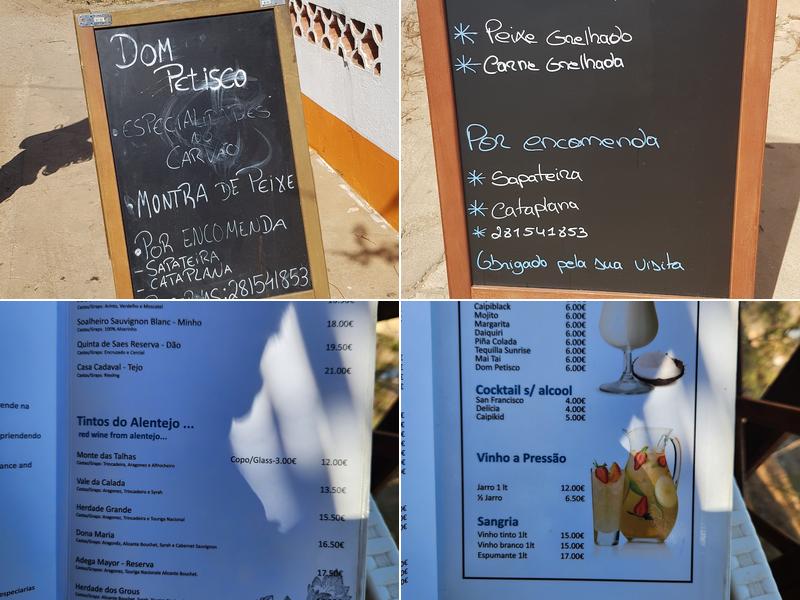 DOM
PETISCO
ESPECIALIDADES
AO
CARVÃO
MONTRA DE PEIXE
POR ENCOMENDA
- SAPATEIRA
- CATAPLANA
:281541853
Peixe Grelhado
Carne Grelhada
Por encomenda
Sapateira
Cataplana
281541853
Obrigado pela sua visita
Castas/Grapes: Arinto, Verdelho e Moscatel
Soalheiro Sauvignon Blanc - Minho 18.00€
Castas/Grape: 100% Alvarinho
Quinta de Saes Reserva - Dão 19.50€
Castas/Grape: Encruzado e Cercial
Casa Cadaval - Tejo 21.00€
Castas/Grape: Riesling
Tintos do Alentejo ...
red wine from alentejo...
Monte das Talhas Copo/Glass-3.00€ 12.00€
Castas/Grapes: Trincadeira, Aragones e Alfrocheiro
Vale da Calada 13.50€
Castas/Grapes: Aragonez, Trincadeira e Syrah
Herdade Grande 15.50€
Castas/Grapes: Aragonez, Trincadeira e Touriga Nacional
Dona Maria 16.50€
Castas/Grapes: Aragonês, Alicante Bouchet, Syrah e Cabernet Sauvignon
Adega Mayor - Reserva 17.50€
Castas/Grapes: Aragonez, Touriga Nacionale Alicante Bouchet.
Herdade dos Grous
ende na
priendendo
ance and
especiarias
Caipiblack 6.00€
Mojito 6.00€
Margarita 6.00€
Daiquiri 6.00€
Piña Colada 6.00€
Tequilla Sunrise 6.00€
Mai Tai 6.00€
Dom Petisco 6.00€
Cocktail s/ alcool
San Francisco 4.00€
Delícia 4.00€
Caipikid 5.00€
Vinho a Pressão
Jarro 1 lt 12.00€
½ Jarro 6.50€
Sangria
Vinho tinto 1lt 15.00€
Vinho branco 1lt 15.00€
Espumante 1lt 17.00€